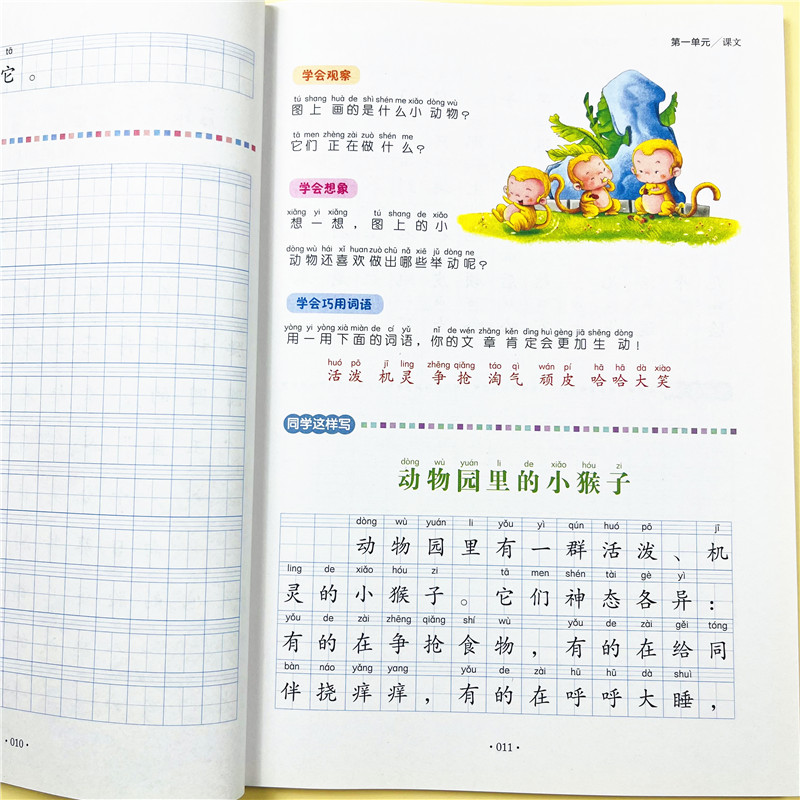 tā
它。
·010·
第一单元/课文
学会观察
tú shang huà de shì shén me xiǎo dòng wù
图上画的是什么小动物？
tā men zhèng zài zuò shén me
它们正在做什么？
学会想象
xiǎng yi xiǎng tú shang de xiǎo
想一想，图上的小
dòng wù hái xǐ huan zuò chū nǎ xiē jǔ dòng ne
动物还喜欢做出哪些举动呢？
学会巧用词语
yòng yi yòng xià miàn de cí yǔ nǐ de wén zhāng kěn dìng huì gèng jiā shēng dòng
用一用下面的词语，你的文章肯定会更加生动！
huó pō jī ling zhēng qiǎng táo qì wán pí hā hā dà xiào
活泼 机灵 争抢 淘气 顽皮 哈哈大笑
同学这样写
dòng wù yuán li de xiǎo hóu zi
动物园里的小猴子
dòng wù yuán li yǒu yì qún huó pō jī
动物园里有一群活泼、机
ling de xiǎo hóu zi tā men shén tài gè yì
灵的小猴子。它们神态各异：
yǒu de zài zhēng qiǎng shí wù yǒu de zài gěi tóng
有的在争抢食物，有的在给同
bàn náo yǎng yang yǒu de zài hū hū dà shuì
伴挠痒痒，有的在呼呼大睡，
·011·